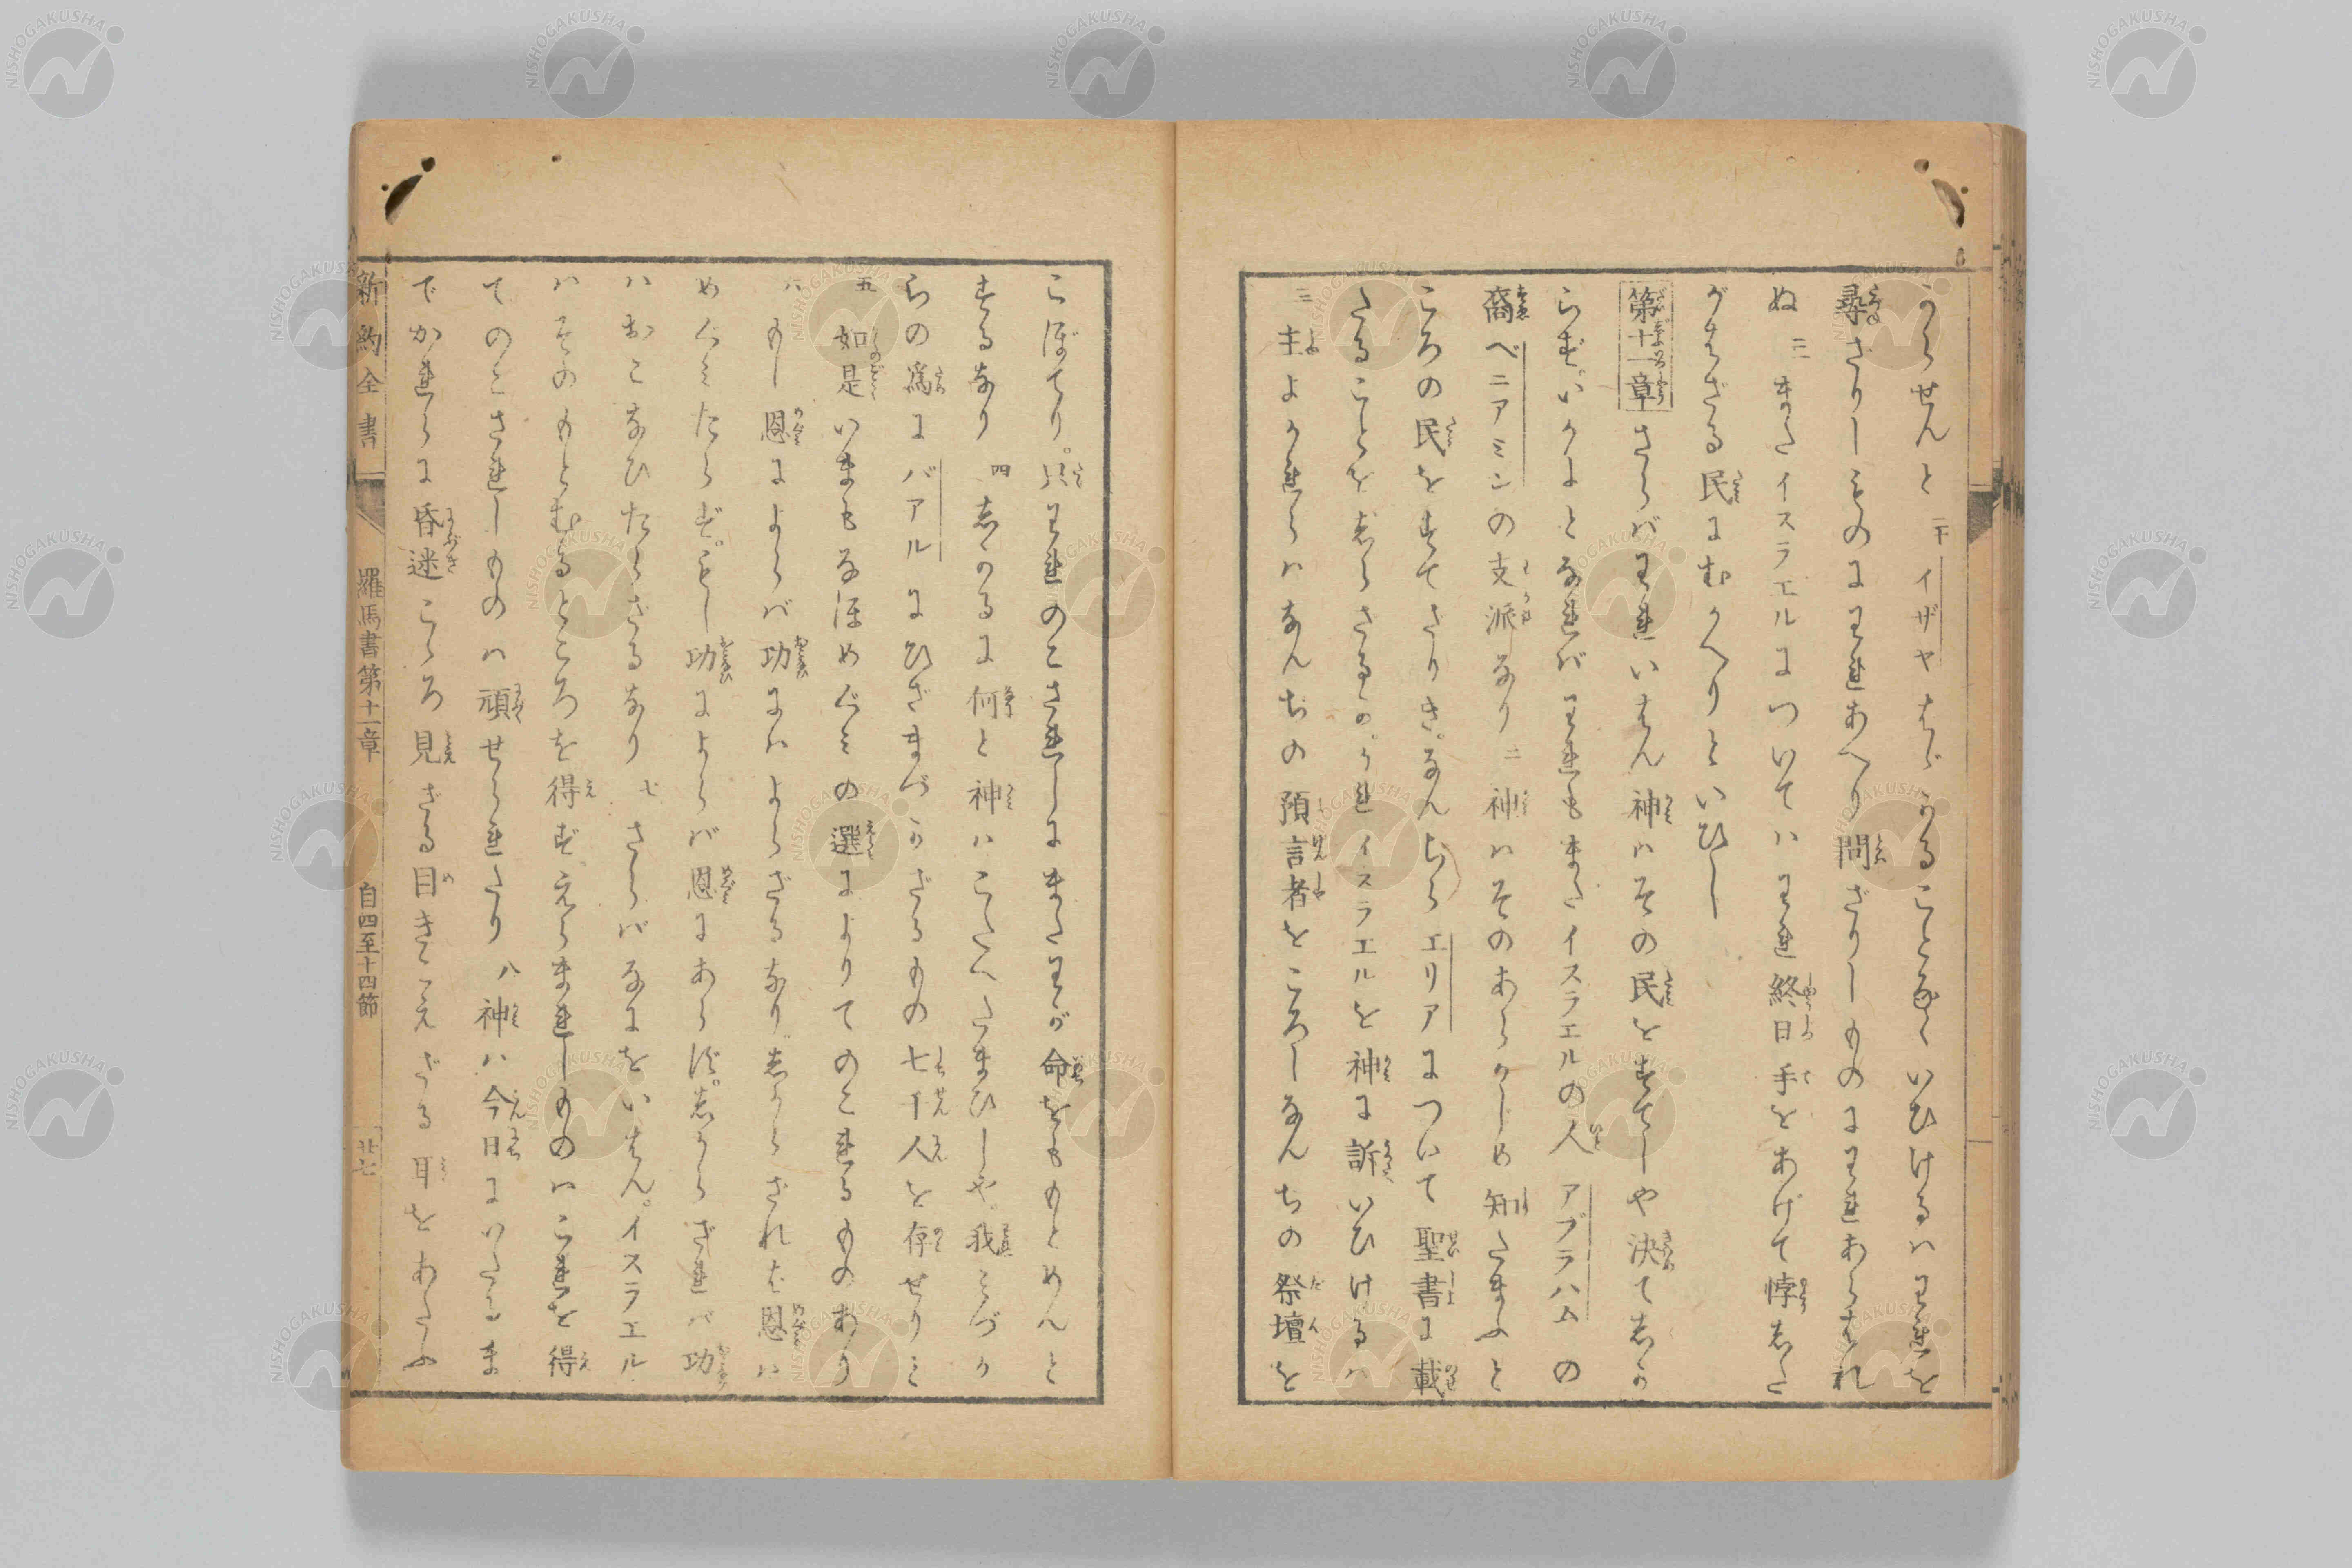 うらせんと 二十 イザヤはゞかることなくいひけるハわれを
尋ざりしものにわれあへり問ざりしものにわれあらはれ
ぬ 二一 またイスラエルについてハわれ終日手をあげて悖した
がはざる民にむかへりといひし
第十一章 さらバわれいはん神ハその民をすてしや決てしか
らず。いかにとなれバわれもまたイスラエルの人アブラハムの
裔ベニアミンの支派なり 二 神ハそのあらかじめ知たまふと
ころの民をすてざりき。なんぢらエリアについて聖書に載
たることをしらざるか。かれイスラエルを神に訴いひけるハ
三 主よかれらハなんぢの預言者をころしなんちの祭壇を
こぼてり。只われのこされしにまたわが命をももとめんと
するなり 四 しかるに何と神ハこたへたまひしや。我みづか
らの爲にバアルにひざまづかざるもの七千人を存せりと
五 如是いまもなほめぐみの選によりてのこれるものあり
六 もし恩によらバ功にハよらざるなり。しからざれば恩ハ
めぐみたらず。もし功によらバ恩にあらず。しからざれバ功
ハおこなひたらざるなり 七 さらバなにをいはん。イスラエル
ハそのもとむるところを得ず。えらまれしものハこれを得
てのこされしものハ頑せられたり 八 神ハ今日にいたるま
でかれらに昏迷こゝろ見ざる目きこえざる耳をあたふ
新約全書 羅馬書第十一章 自四至十四節 廿七